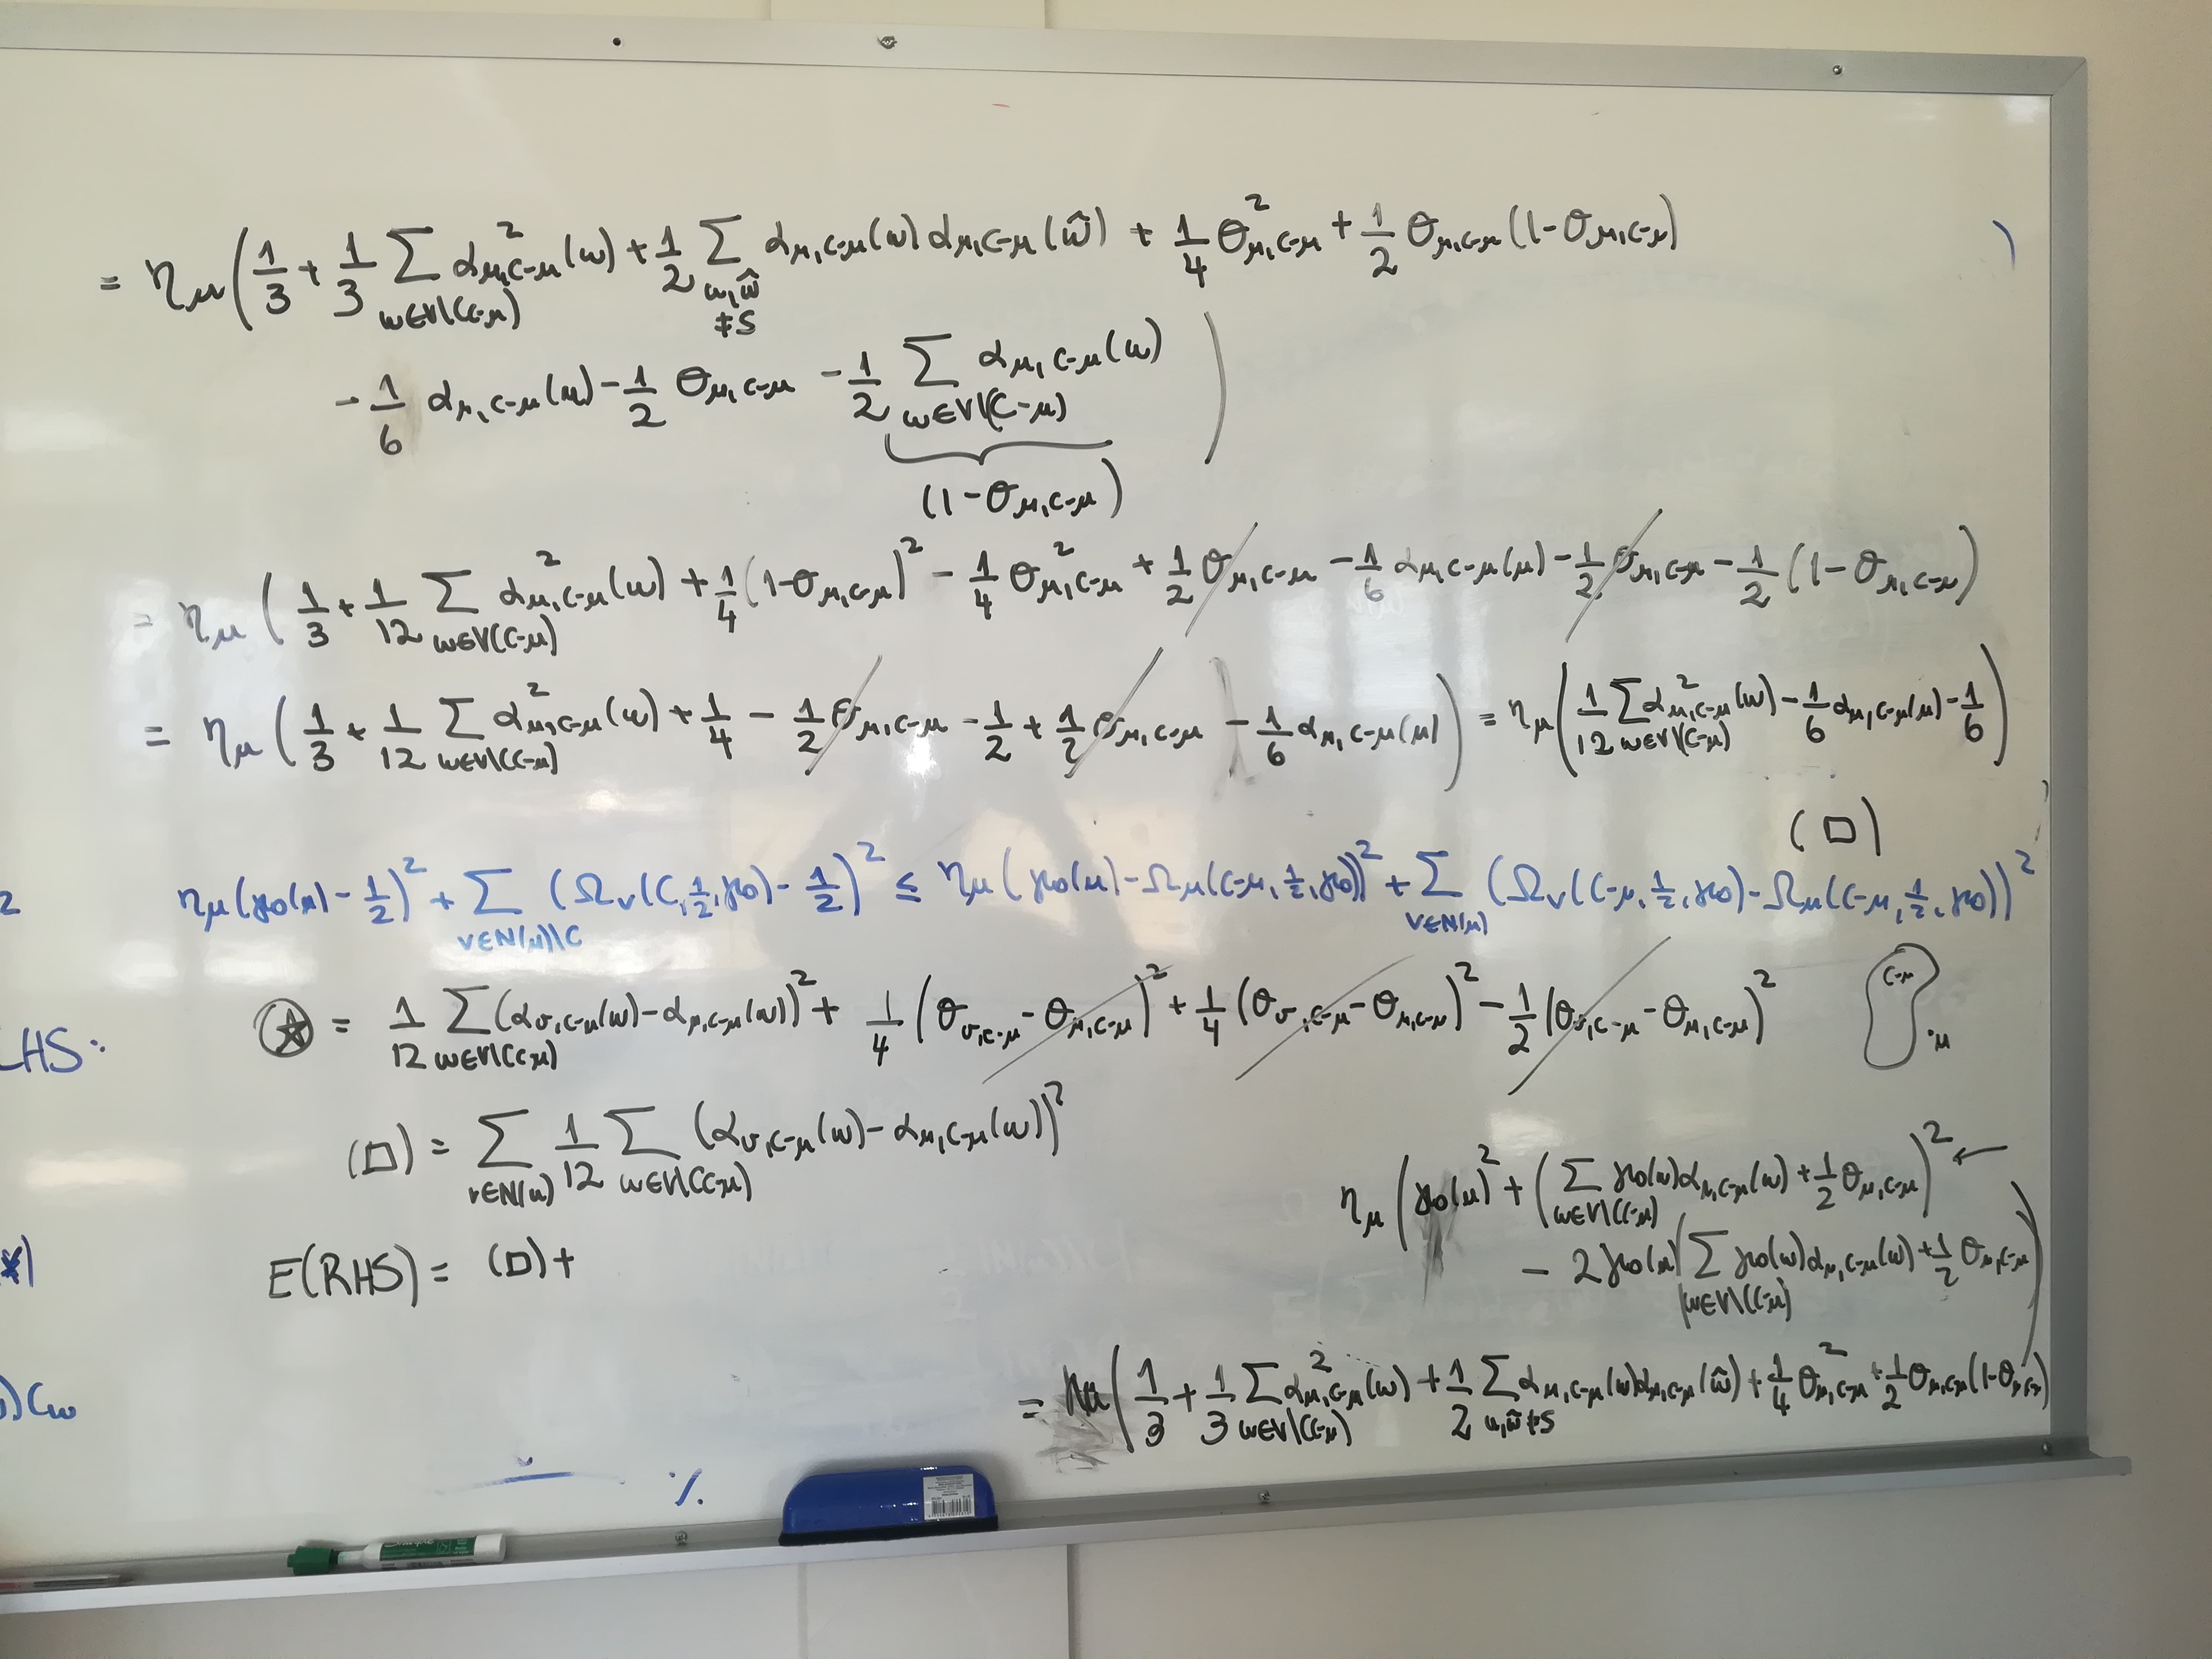 = η_μ ( 1/3 + 1/3 Σ_{w∈V\(C-μ)} α²_{μ,C-μ}(w) + 1/2 Σ_{w,ŵ ≠S} α_{μ,C-μ}(w) α_{μ,C-μ}(ŵ) + 1/4 θ²_{μ,C-μ} + 1/2 θ_{μ,C-μ} (1-θ_{μ,C-μ})
- 1/6 α_{μ,C-μ}(μ) - 1/2 θ_{μ,C-μ} - 1/2 Σ_{w∈V\(C-μ)} α_{μ,C-μ}(w) )
(1-θ_{μ,C-μ})
= η_μ ( 1/3 + 1/12 Σ_{w∈V\(C-μ)} α²_{μ,C-μ}(w) + 1/4 (1-θ_{μ,C-μ})² - 1/4 θ²_{μ,C-μ} + 1/2 θ_{μ,C-μ} - 1/6 α_{μ,C-μ}(μ) - 1/2 θ_{μ,C-μ} - 1/2 (1-θ_{μ,C-μ})
= η_μ ( 1/3 + 1/12 Σ_{w∈V\(C-μ)} α²_{μ,C-μ}(w) + 1/4 - 1/2 θ_{μ,C-μ} - 1/2 + 1/2 θ_{μ,C-μ} - 1/6 α_{μ,C-μ}(μ) ) = η_μ ( 1/12 Σ_{w∈V\(C-μ)} α²_{μ,C-μ}(w) - 1/6 α_{μ,C-μ}(μ) - 1/6 )
(□)
2 η_μ (γ₀(μ) - 1/2)² + Σ_{v∈N(μ)\C} (Ω_v(C,1/2,γ₀) - 1/2)² ≤ η_μ (γ₀(μ) - Ω_μ(C-μ,1/2,γ₀))² + Σ_{v∈N(μ)} (Ω_v(C-μ,1/2,γ₀) - Ω_μ(C-μ,1/2,γ₀))²
LHS: ☆ = 1/12 Σ_{w∈V\(C-μ)} (α_{v,C-μ}(w) - α_{μ,C-μ}(w))² + 1/4 (θ_{v,C-μ} - θ_{μ,C-μ})² + 1/4 (θ_{v,C-μ} - θ_{μ,C-μ})² - 1/2 (θ_{v,C-μ} - θ_{μ,C-μ})²
C-μ
·μ
(□) = Σ_{v∈N(μ)} 1/12 Σ_{w∈V\(C-μ)} (α_{v,C-μ}(w) - α_{μ,C-μ}(w))²
η_μ ( γ₀(μ)² + ( Σ_{w∈V\(C-μ)} γ₀(w) α_{μ,C-μ}(w) + 1/2 θ_{μ,C-μ} )² ←
- 2 γ₀(μ) ( Σ_{w∈V\(C-μ)} γ₀(w) α_{μ,C-μ}(w) + 1/2 θ_{μ,C-μ} )
E(RHS) = (□) +
= ( 1/3 + 1/3 Σ_{w∈V\(C-μ)} α²_{μ,C-μ}(w) + 1/2 Σ_{w,ŵ≠S} α_{μ,C-μ}(w) α_{μ,C-μ}(ŵ) + 1/4 θ²_{μ,C-μ} + 1/2 θ_{μ,C-μ} (1-θ_{μ,C-μ})
)C_w